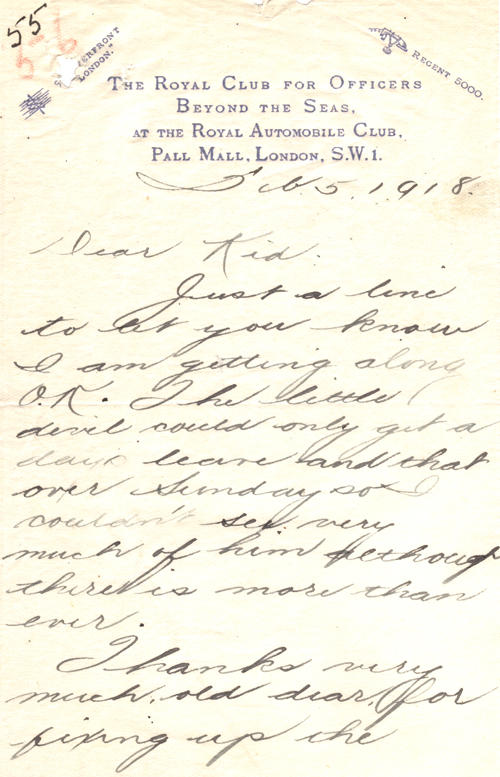 55
55
"...ERFRONT
LONDON."
REGENT 5000.
THE ROYAL CLUB FOR OFFICERS
BEYOND THE SEAS,
AT THE ROYAL AUTOMOBILE CLUB,
PALL MALL, LONDON, S.W.1.
Feb 5, 1918.
Dear Kid.
Just a line
to let you know
I am getting along
O.K. The little
devil could only get a
days leave and that
over Sunday so I
couldn't see very
much of him although
there is more than
ever.
Thanks very
much, old dear, for
fixing up the